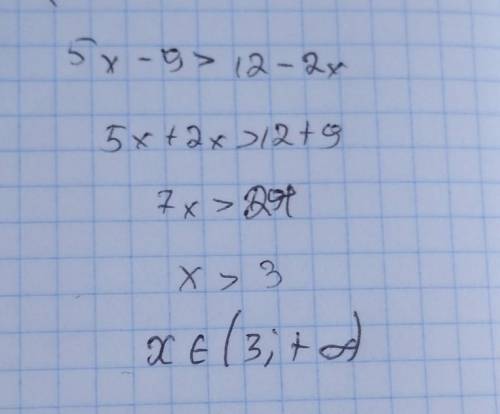 5x - 9 > 12 - 2x
5x + 2x > 12 + 9
7x > 21
x > 3
x ∈ (3; +∞)